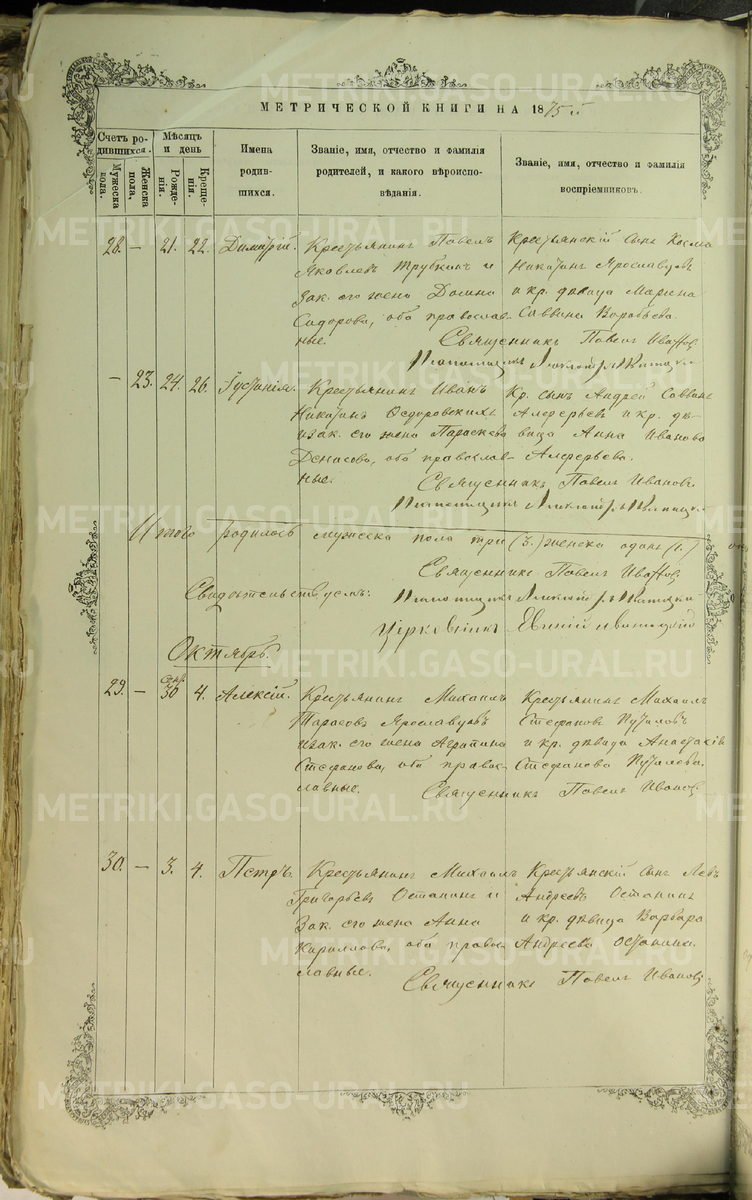 МЕТРИЧЕСКОЙ КНИГИ НА 1875й
Счетъ родившихся.
Мужеска пола.
Женска пола,
Мѣсяцъ и день
Рожденія.
Крещенія.
Имена родившихся.
Званіе, имя, отчество и фамилія родителей, и какого вѣроисповѣданія.
Званіе, имя, отчество и фамилія воспріемниковъ.
28. — 21. 22. Димитрій.
Крестьянинъ Павелъ
Яковлевъ Трубкинъ и
зак. его жена Домна
Сидорова, оба православ-
ные.
Крестьянскій сынъ Косма
Никитинъ Ярославцовъ
и кр. дѣвица Марина
Саввина Воробьева.
Священникъ Павелъ Ивановъ
— 23. 24. 26. Іустинія.
Крестьянинъ Иванъ
Никитинъ Ѳедоровскихъ
и зак. его жена Параскева
Денисова, оба православ-
ные.
Кр. сынъ Андрей Саввинъ
Алферьевъ и кр. дѣ-
вица Анна Иванова
Алферьева.
Священникъ Павелъ Ивановъ.
Итого родилось мужеска пола три (3.) женска одинъ (1.)
Священникъ Павелъ Ивановъ
Свидѣтельствуемъ:
Октябрь.
29. — Сент. 30 4. Алексій.
Крестьянинъ Михаилъ
Тарасовъ Ярославцовъ
и зак. его жена Агрипина
Стефанова, оба правос-
лавные.
Крестьянинъ Михаилъ
Стефановъ Путиловъ
и кр. дѣвица Анастасія
Стефанова Путилова.
Священникъ Павелъ Ивановъ
30. — 3. 4. Петръ.
Крестьянинъ Михаилъ
Григорьевъ Останинъ и
Зак. его жена Анна
Кириллова, оба правос-
лавные.
Крестьянскій сынъ Левъ
Андреевъ Останинъ
и кр. дѣвица Варвара
Андреева Останина.
Священникъ Павелъ Ивановъ
METRIKI.GASO-URAL.RU